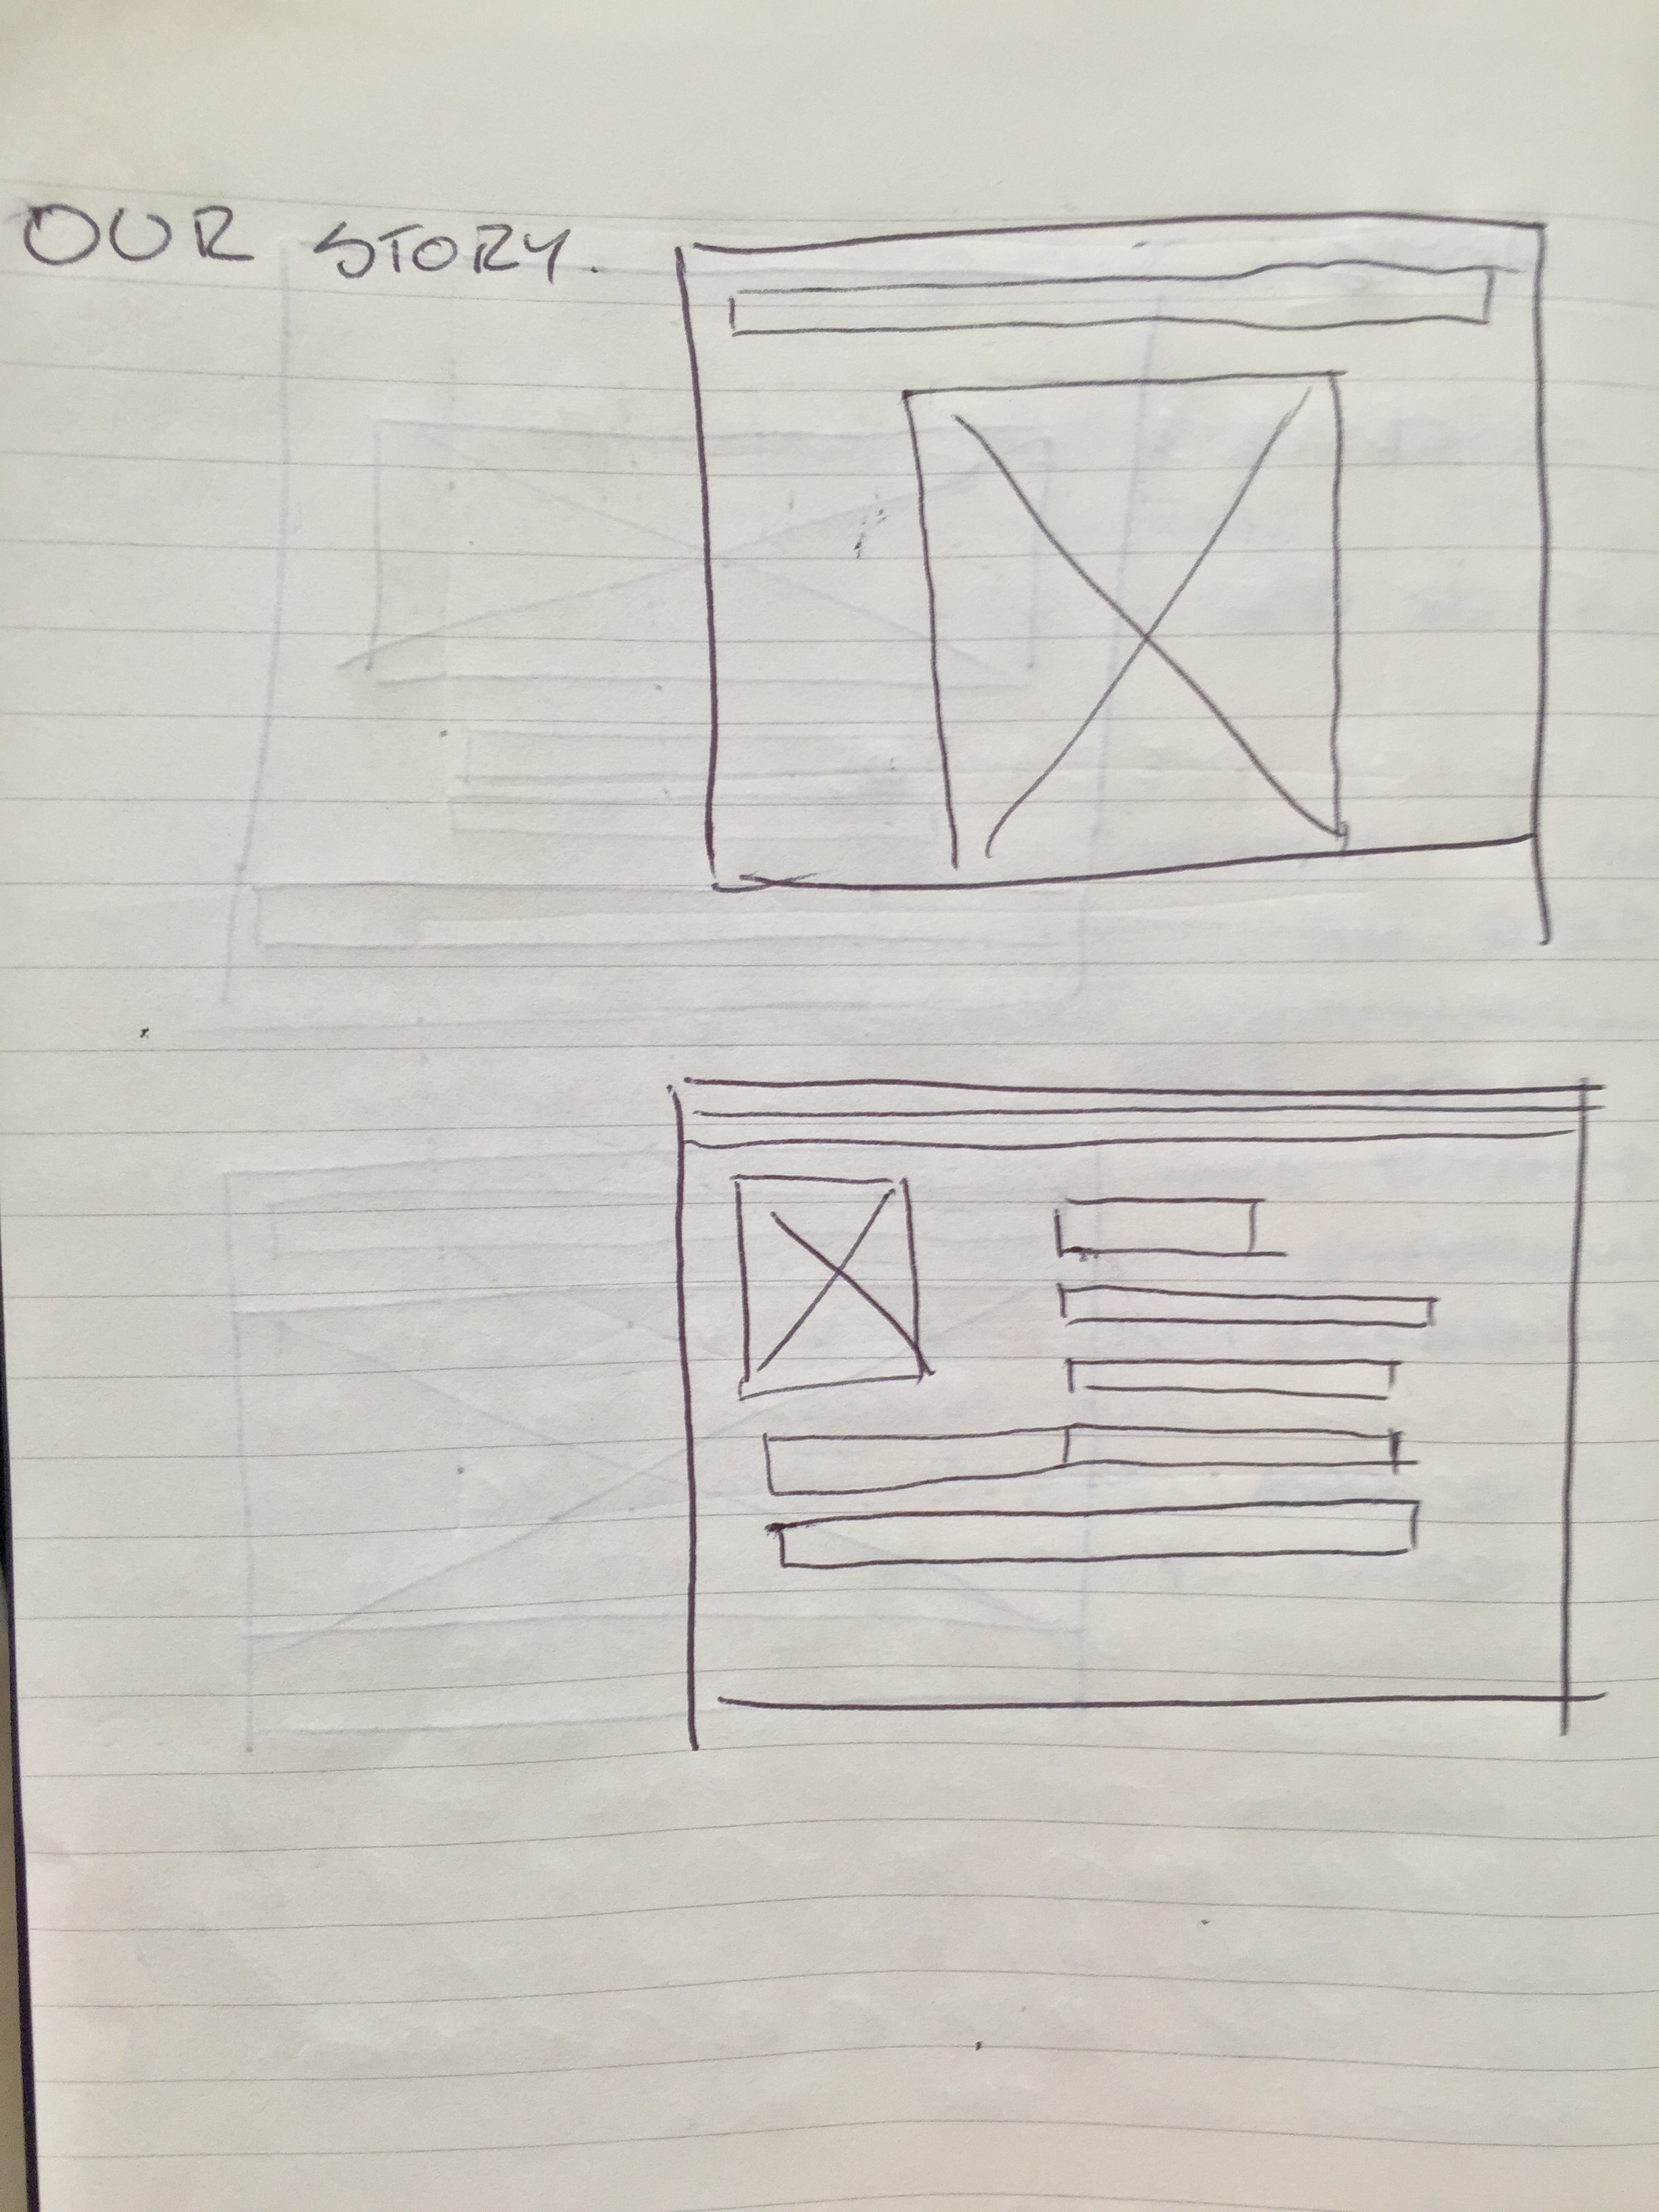 OUR STORY.